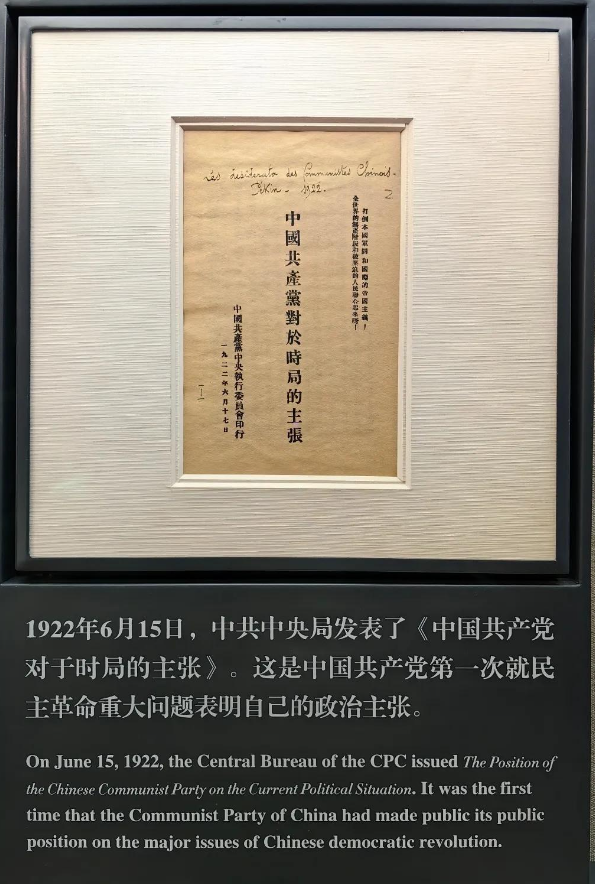 Les desiderata des Communistes Chinois-
Pékin - 1922.
2
打倒本國軍閥和國際的帝國主義！
全世界的無產階級和被壓迫的人民聯合起來呀！
中國共產黨對於時局的主張
中國共產黨中央執行委員會印行
一九二二年六月十七日
1922年6月15日，中共中央局发表了《中国共产党
对于时局的主张》。这是中国共产党第一次就民
主革命重大问题表明自己的政治主张。
On June 15, 1922, the Central Bureau of the CPC issued The Position of
the Chinese Communist Party on the Current Political Situation. It was the first
time that the Communist Party of China had made public its public
position on the major issues of Chinese democratic revolution.